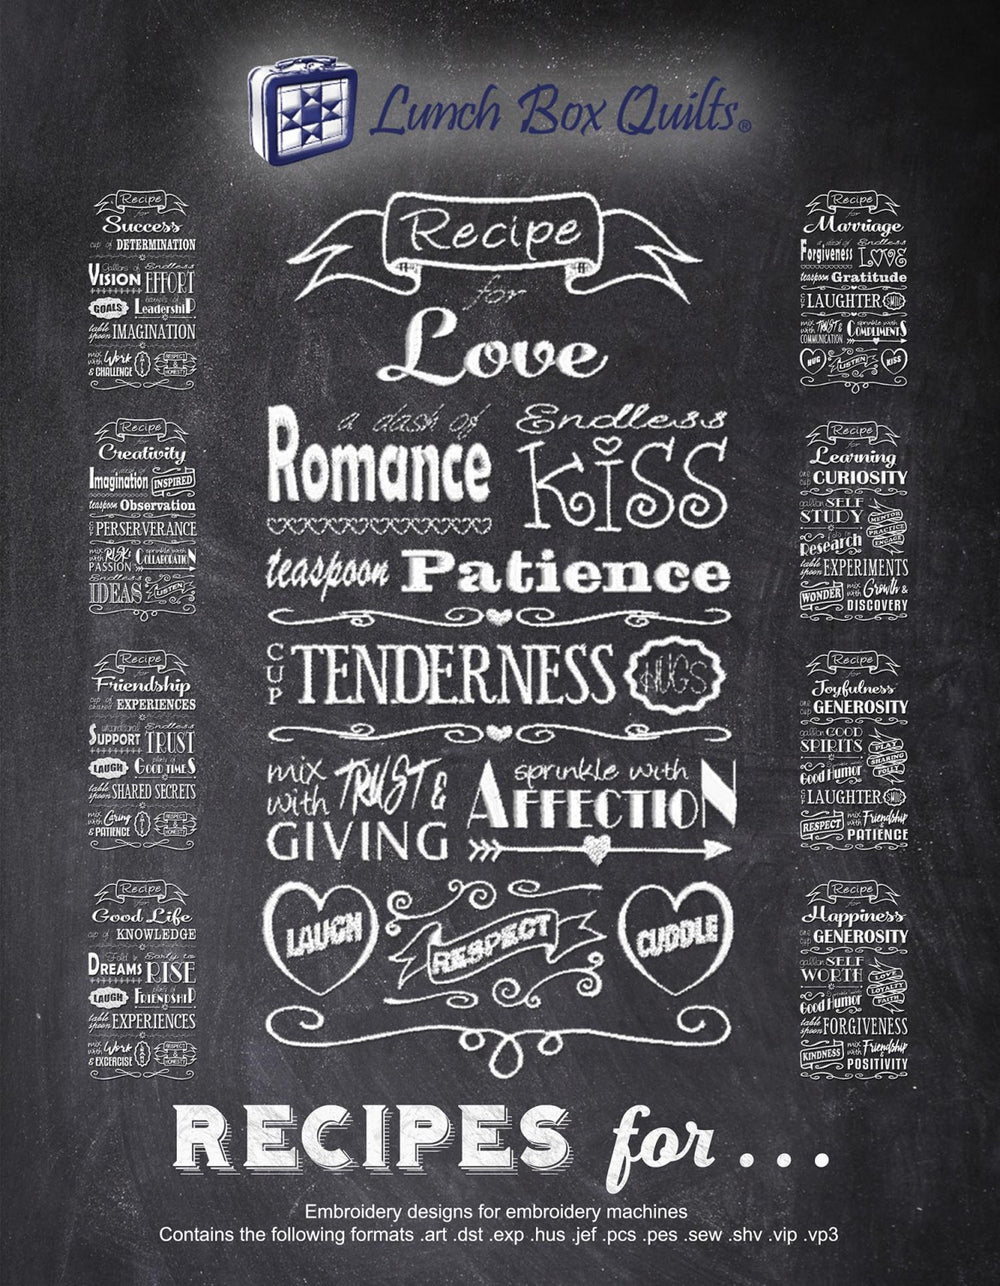 Lunch Box Quilts®
Recipe
for
Love
a dash of
Romance
Endless
KiSS
teaspoon Patience
CUP TENDERNESS HUGS
mix with TRUST & GIVING
sprinkle with
AFFECTION
LAUGH
RESPECT
CUDDLE
Recipe
for
Success
cup of DETERMINATION
Gallons of
VISION
Endless
EFFORT
GOALS
LeadershiP
table spoon IMAGINATION
mix with Work & CHALLENGE
RESPECT & HONESTY
Recipe
for
Creativity
Imagination
INSPIRED
teaspoon Observation
CUP PERSERVERANCE
mix with RISK
PASSION
sprinkle with
COLLABORATION
Endless
IDEAS
LISTEN
Recipe
for
Friendship
cup of shared EXPERIENCES
SUPPORT
Endless
TRUST
LAUGH
GOOD TIMES
table spoon SHARED SECRETS
mix with Caring & PATIENCE
Recipe
for
Good Life
cup of KNOWLEDGE
DREAMS
Early to
RISE
LAUGH
FRIENDSHIP
table spoon EXPERIENCES
mix with Work & EXCERCISE
Recipe
for
Marriage
a dash of
Forgiveness
Endless
LOVE
teaspoon Gratitude
CUP LAUGHTER SMILE
mix with TRUST &
COMMUNICATION
sprinkle with
COMPLIMENTS
HUG
LISTEN
KISS
Recipe
for
Learning
one cup CURIOSITY
gallon SELF
STUDY
MENTOR
PRACTICE
ENGAGE
Research
table spoon EXPERIMENTS
WONDER
mix with Growth &
DISCOVERY
Recipe
for
Joyfulness
one cup GENEROSITY
gallon GOOD
SPIRITS
PLAY
SHARING
POLITE
Good Humor
CUP LAUGHTER SMILE
RESPECT
mix with Friendship
PATIENCE
Recipe
for
Happiness
one cup GENEROSITY
gallon SELF
WORTH
LOVE
LOYALTY
FAITH
Good Humor
table spoon FORGIVENESS
KINDNESS
mix with Friendship
POSITIVITY
RECIPES for...
Embroidery designs for embroidery machines
Contains the following formats .art .dst .exp .hus .jef .pcs .pes .sew .shv .vip .vp3